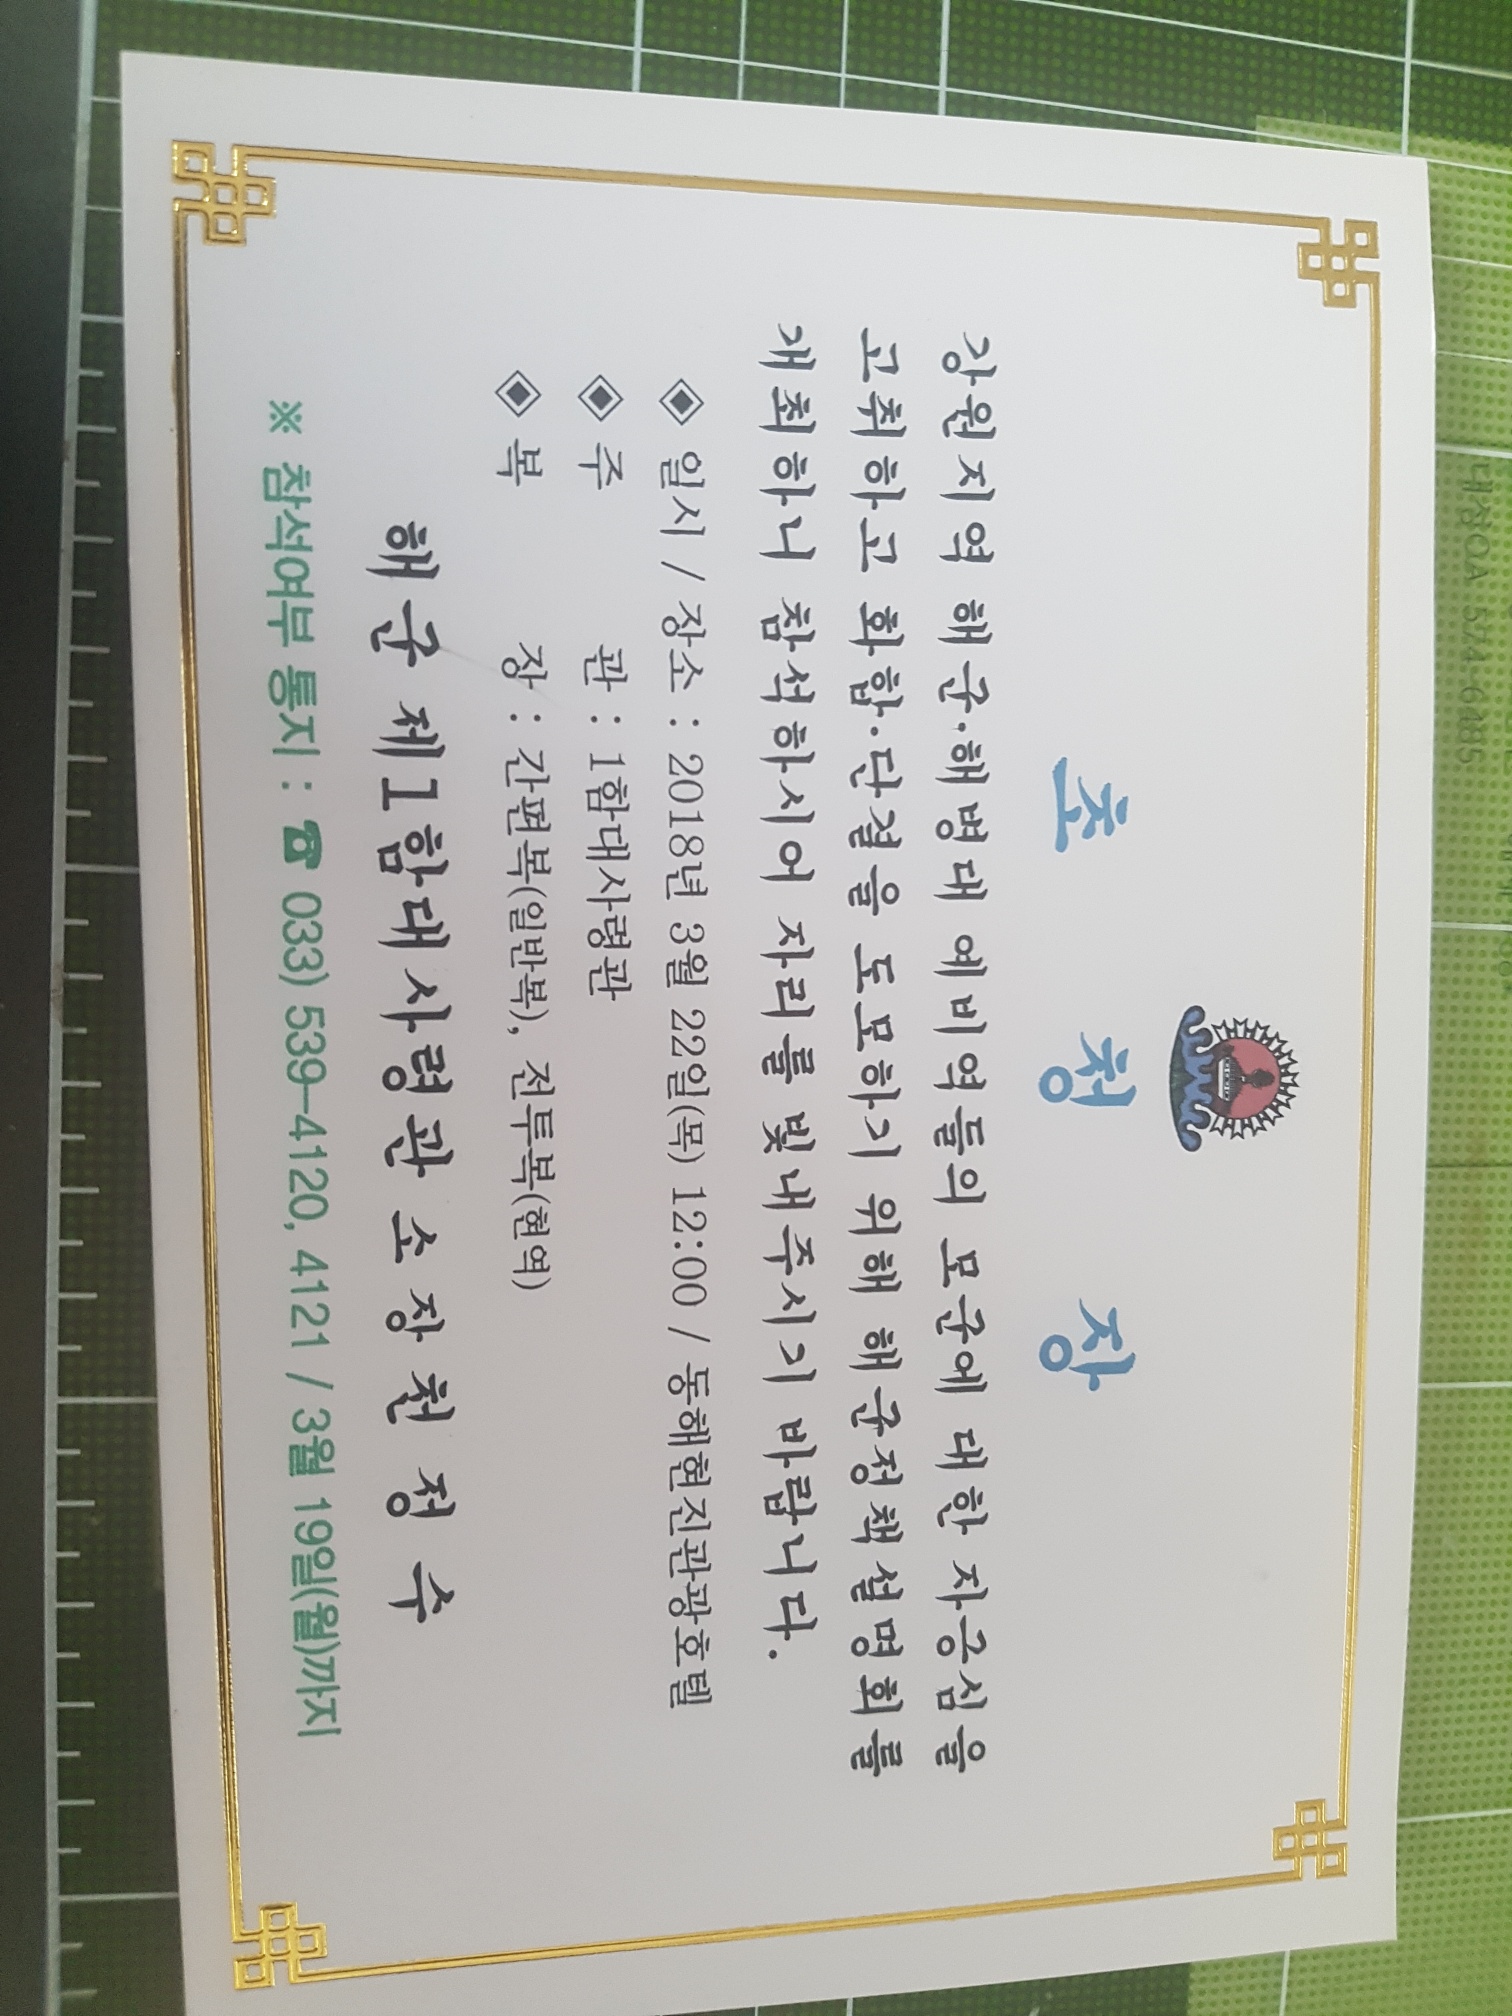 초 청 장
강원지역 해군·해병대 예비역들의 모군에 대한 자긍심을
고취하고 화합·단결을 도모하기 위해 해군정책설명회를
개최하니 참석하시어 자리를 빛내주시기 바랍니다.
◈ 일시 / 장소 : 2018년 3월 22일(목) 12:00 / 동해현진관광호텔
◈ 주 관 : 1함대사령관
◈ 복 장 : 간편복(일반복), 전투복(현역)
해군 제1함대사령관 소장 천 정 수
※ 참석여부 통지 : ☎ 033) 539-4120, 4121 / 3월 19일(월)까지